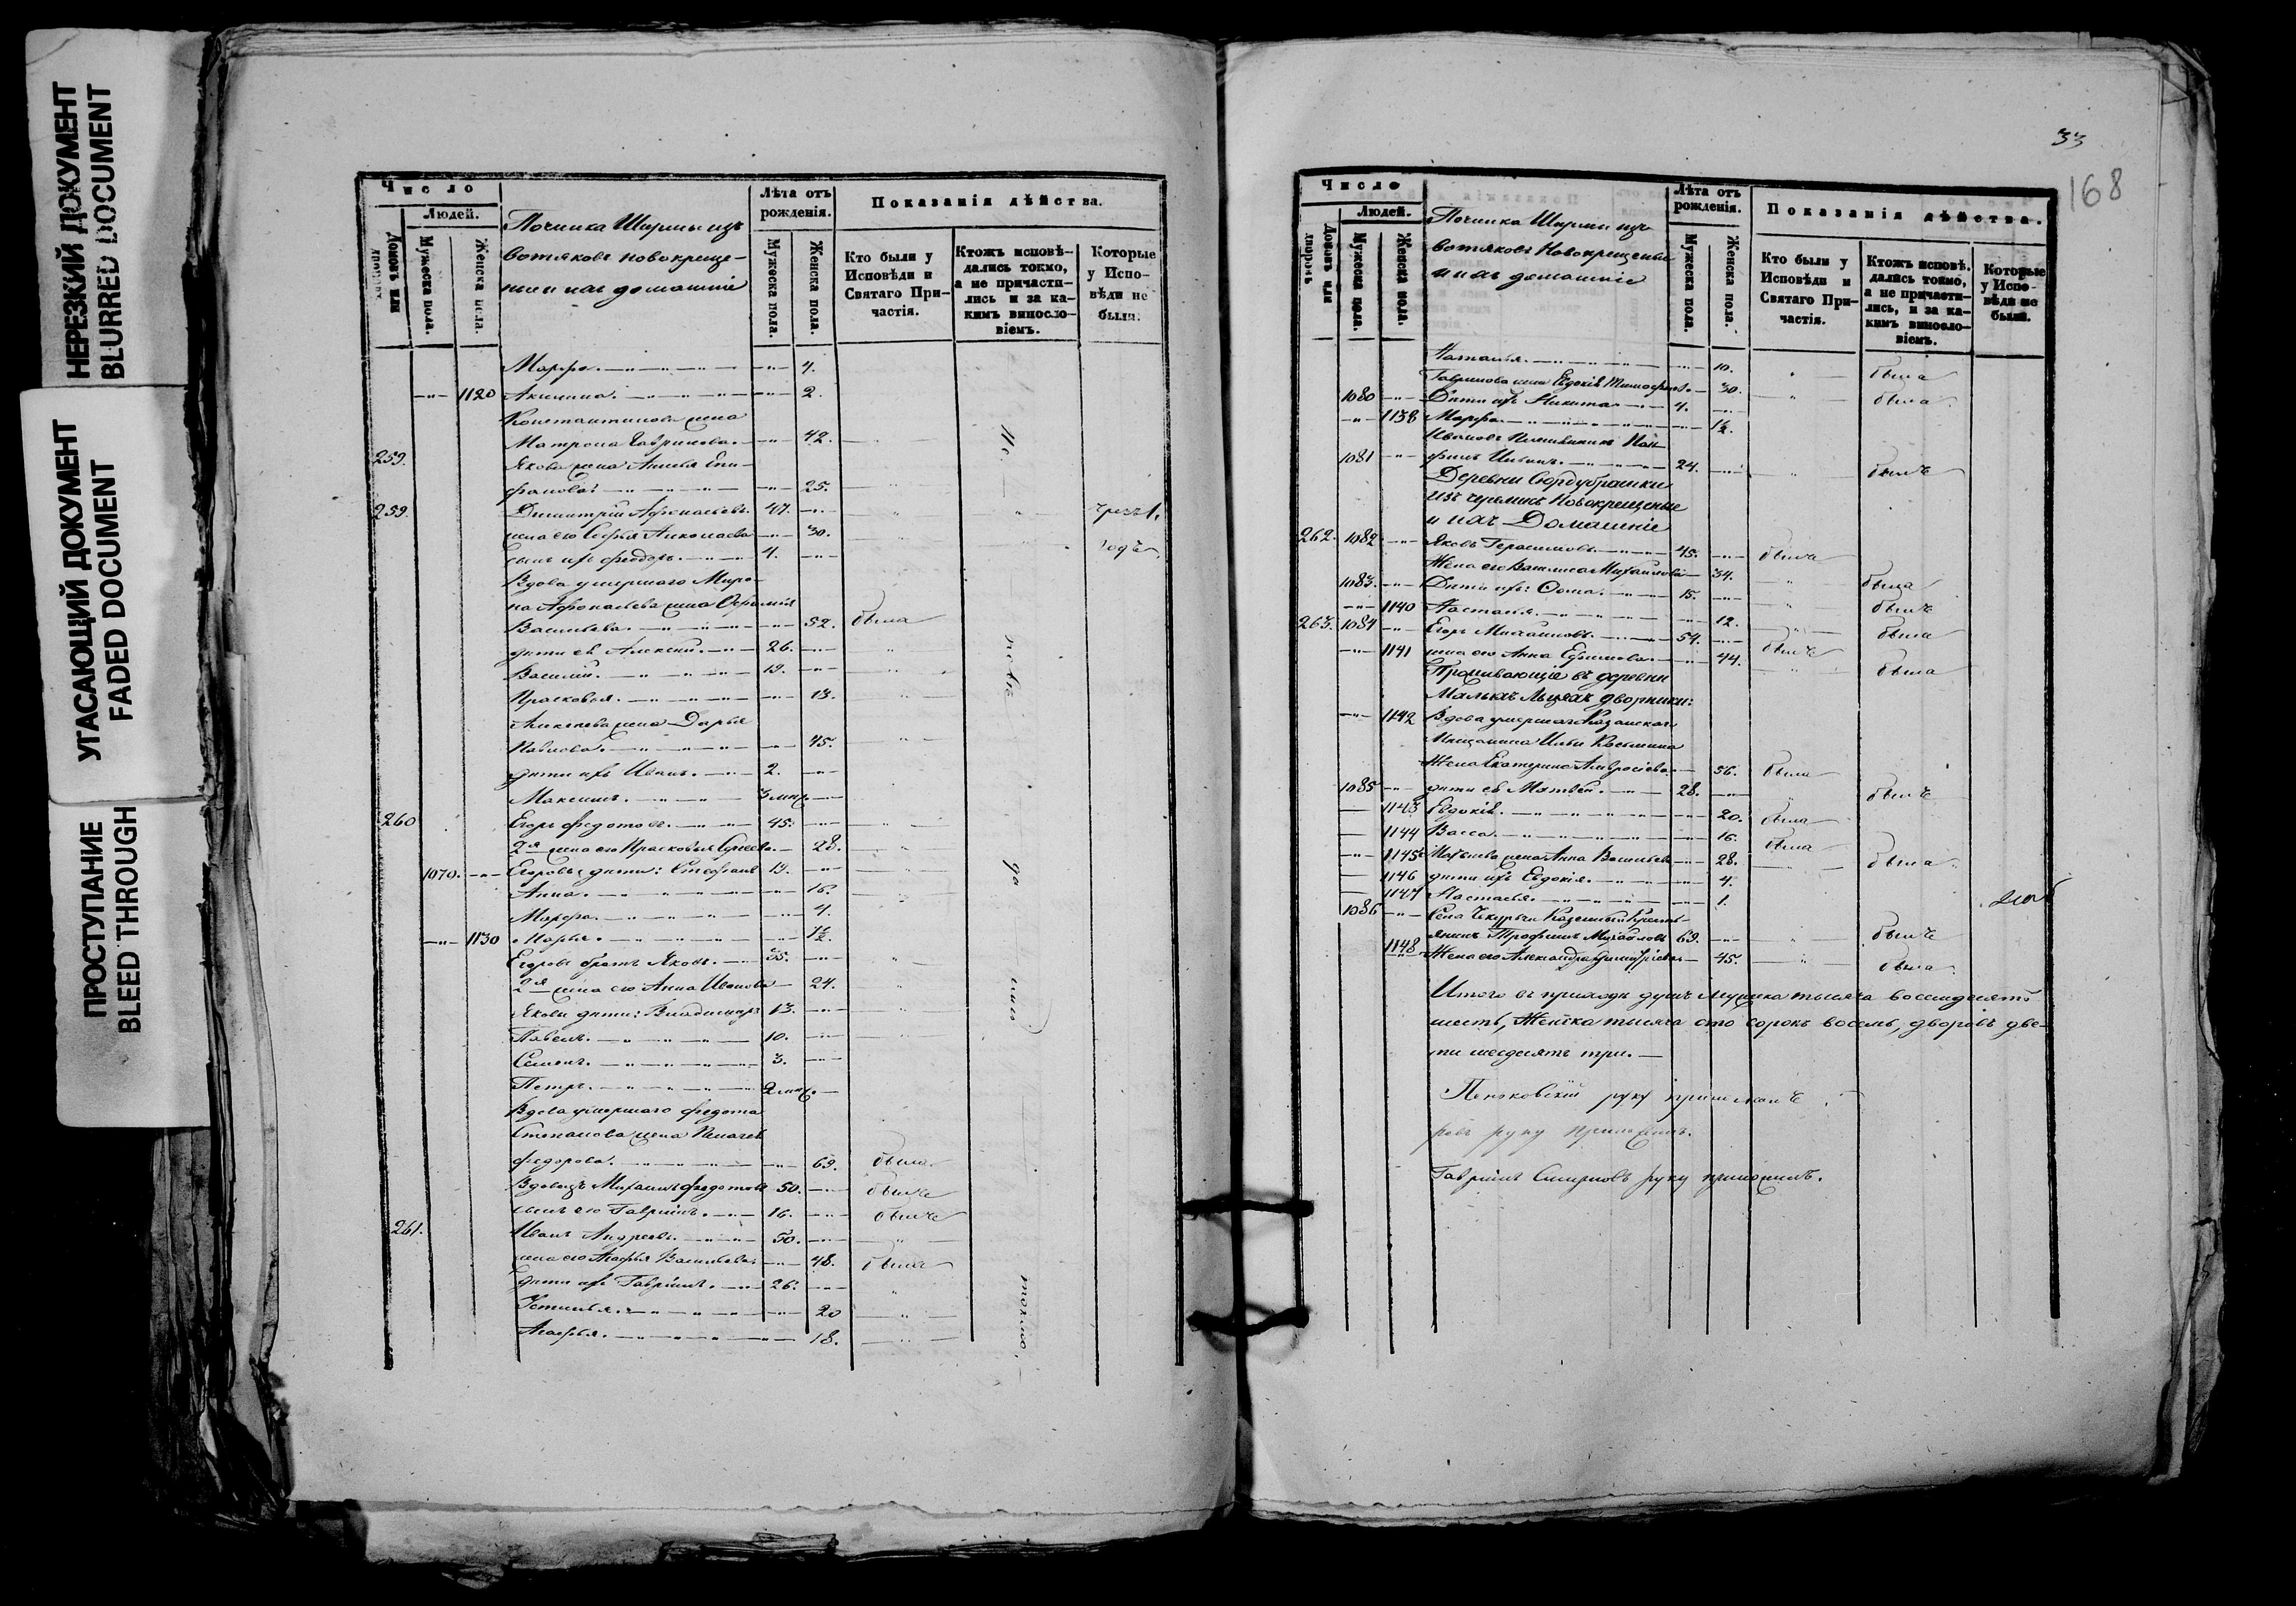 НЕРЕЗКИЙ ДОКУМЕНТ
BLURRED DOCUMENT
УГАСАЮЩИЙ ДОКУМЕНТ
FADED DOCUMENT
ПРОСТУПАНИЕ
BLEED THROUGH
Число
Людей.
Домовъ или дворовъ
Мужеска пола.
Женска пола.
Починка Ширмы изъ
вотяковъ новокреще-
ные и ихъ домашніе
Лѣта отъ рожденія.
Мужеска пола.
Женска пола.
Показанія дѣйства.
Кто были у Исповѣди и Святаго Причастія.
Ктожъ исповѣдались токмо, а не причастились и за какимъ винословіемъ.
Которые у Исповѣди не были.
Марѳа. 4.
1120 Акилина. 2.
Константинова жена
Матрона Гаврилова. 42.
259. Якова жена Анисья Епи-
фанова. 25.
259. Димитрій Афонасьевъ. 47. чрезъ 1.
жена его Софья Николаева 30.
сынъ ихъ Феодоръ. 4. годъ
Вдова умершаго Миро-
на Афонасьева жена
Васильева. 52. была
дѣти ея Алексій. 26.
Василій. 19.
Прасковья. 13.
жена Дарья
Павлова. 45.
дѣти ихъ Иванъ. 2.
Максимъ. 3 мѣс.
260 Егоръ Федотовъ. 45.
2я жена его Прасковья Сергѣева. 28.
1070. Егоровы дѣти: Стефанъ 19.
Анна. 16.
Марѳа. 4.
1130 Марья. 1½.
Егоровъ братъ Яковъ. 35.
2я жена его Анна Иванова 24.
Якова дѣти: Владимиръ 13.
Павелъ. 10.
Семенъ. 3.
Петръ. 2 мѣс.
Вдова умершаго Федота
Степанова жена Пелагея
Федорова. 69. была
Вдовецъ Михаилъ Федотовъ 50. былъ
сынъ его Гавріилъ. 16. былъ
261. Иванъ Андреевъ. 50.
жена его Агафья Васильева. 48. была
дѣти ихъ Гавріилъ. 26.
Устинья. 20
Агафья. 18.
33
168
Число
Людей.
Домовъ или дворовъ
Мужеска пола.
Женска пола.
Починка Ширмы изъ
вотяковъ Новокрещеные
и ихъ домашніе
Лѣта отъ рожденія.
Мужеска пола.
Женска пола.
Показанія дѣйства.
Кто были у Исповѣди и Святаго Причастія.
Ктожъ исповѣдались токмо, а не причастились, и за какимъ винословіемъ.
Которые у Исповѣди не были.
Наталья. 10. была
Гаврилова жена Евдокія Тимофеева 30. была
1080 Дѣти ихъ Никита 4.
1138 Марѳа. 1½.
Ивановъ племянникъ
1081 24. былъ
Деревни
изъ черемисъ Новокрещеные
и ихъ Домашніе
262. 1082 Яковъ Герасимовъ. 45. былъ
Жена его Василиса Михайлова 34. была
1083. Дѣти ихъ: Ѳома. 15. былъ
1140 Настасья. 12. была
263. 1084 Егоръ Михайловъ. 54. былъ
1141 жена его Анна Ефимова 44. была
Проживающіе въ деревни
Малыхъ дворники:
1142 Вдова умершаго Казанскаго
Мѣщанина Ильи Косьмина
Жена Екатерина Амвросіева 56. была
1085 дѣти ея Матвей. 28. былъ
1143 Евдокія. 20. была
1144 Васса. 16. была
1145 Матвеева жена Анна Васильева 28. была
1146 дѣти ихъ Евдокія. 4.
1147 Настасья. 1.
1086 Села Чкурьи Казенный Крестья-
янинъ Трофимъ Михайловъ 69. былъ
1148 Жена его Александра Димитріева 45. была
Итого въ приходѣ душъ мужска тысяча восемдесятъ
шесть, Женска тысяча сто сорокъ восемь, дворовъ две-
сти шесдесятъ три.
Пеньковскій руку приложилъ.
руку приложилъ.
Гавріилъ Смирновъ руку приложилъ.